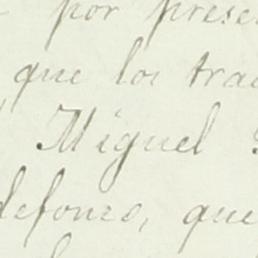 por prese
que los tra
Miguel
defonzo, que